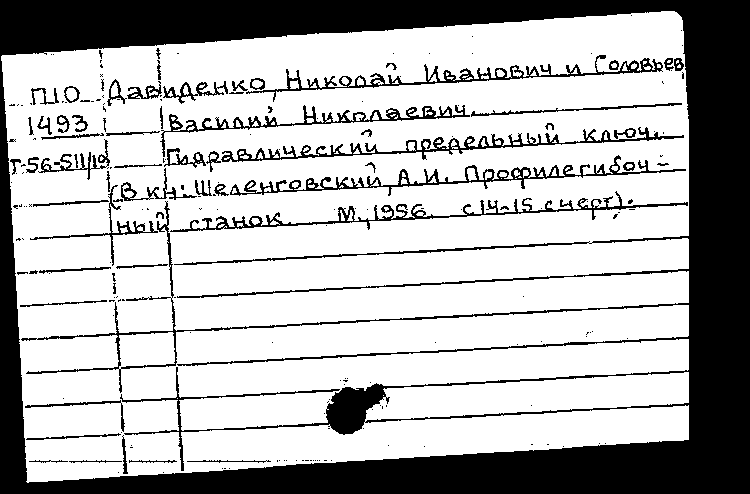 П10 Давиденко, Николай Иванович и Соловьев,
1493 Василий Николаевич.
Г-56-511/19 Гидравлический предельный ключ.
(В кн: Шеленговский, А.И. Профилегибоч-
ный станок. М., 1956. с 14-15 с черт).